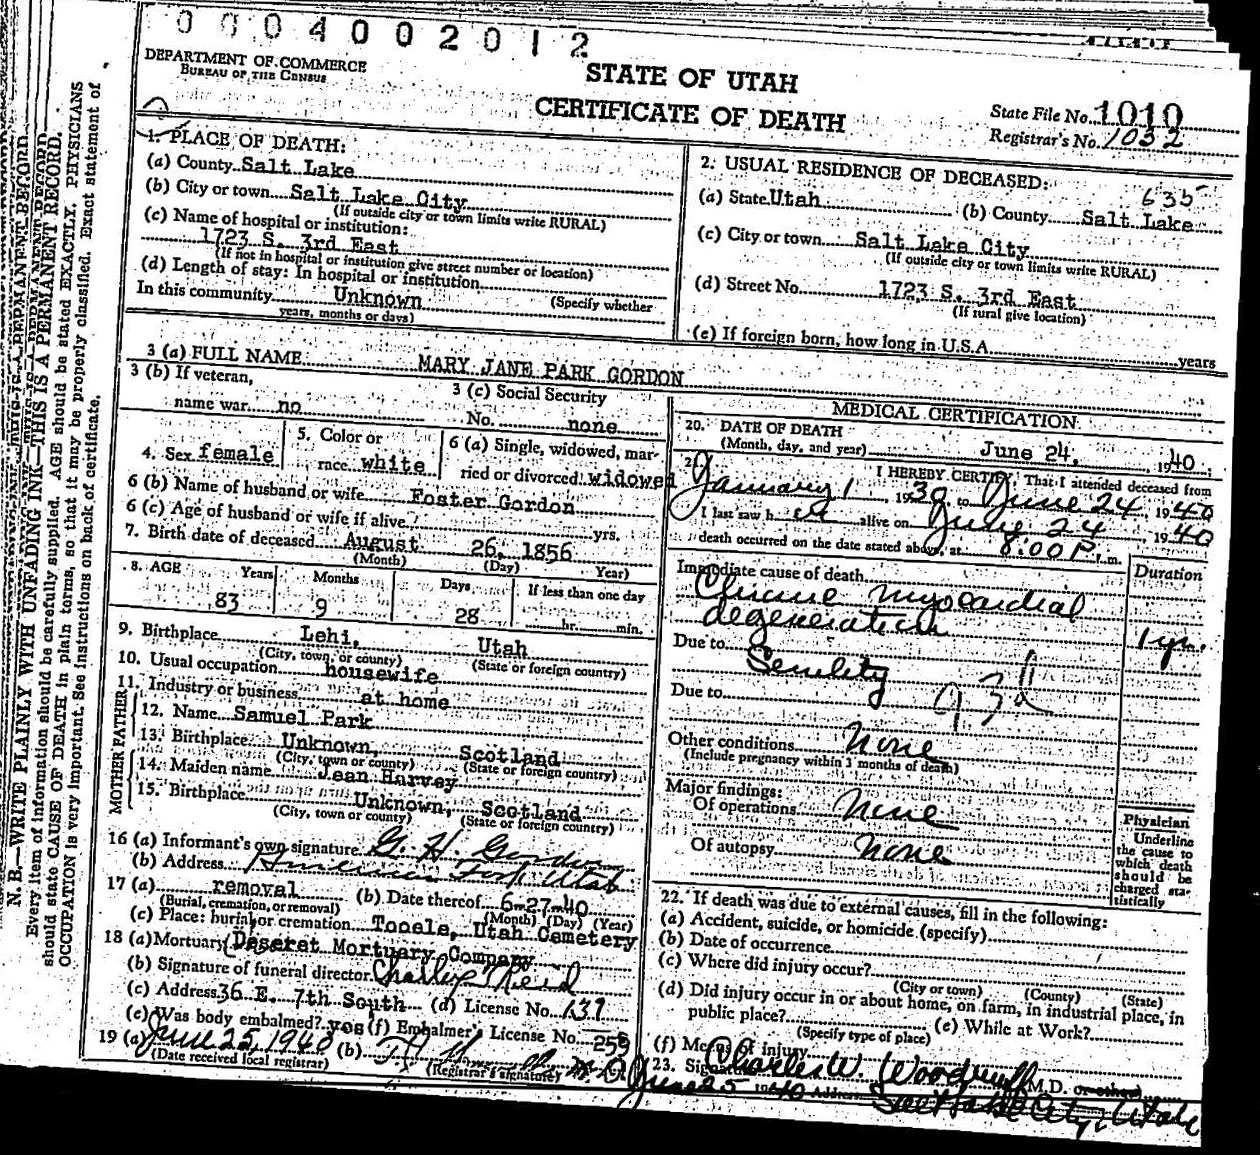 0004002012
DEPARTMENT OF COMMERCE
BUREAU OF THE CENSUS
STATE OF UTAH
CERTIFICATE OF DEATH
State File No. 1010
Registrar's No. 1032
N. B.—WRITE PLAINLY WITH UNFADING INK—THIS IS A PERMANENT RECORD.
Every item of information should be carefully supplied. AGE should be stated EXACTLY. PHYSICIANS
should state CAUSE OF DEATH in plain terms, so that it may be properly classified. Exact statement of
OCCUPATION is very important. See instructions on back of certificate.
1. PLACE OF DEATH:
(a) County Salt Lake
(b) City or town Salt Lake City
(If outside city or town limits write RURAL)
(c) Name of hospital or institution:
1723 S. 3rd East
(If not in hospital or institution give street number or location)
(d) Length of stay: In hospital or institution
In this community Unknown (Specify whether
years, months or days)
2. USUAL RESIDENCE OF DECEASED:
635
(a) State Utah (b) County Salt Lake
(c) City or town Salt Lake City
(If outside city or town limits write RURAL)
(d) Street No. 1723 S. 3rd East
(If rural give location)
(e) If foreign born, how long in U.S.A. years
3 (a) FULL NAME MARY JANE PARK GORDON
3 (b) If veteran, 3 (c) Social Security
name war no No. none
4. Sex female 5. Color or race white 6 (a) Single, widowed, married or divorced widowed
6 (b) Name of husband or wife Foster Gordon
6 (c) Age of husband or wife if alive yrs.
7. Birth date of deceased August 26, 1856
(Month) (Day) Year)
8. AGE Years Months Days If less than one day
83 9 28 hr. min.
9. Birthplace Lehi, Utah
(City, town or county) (State or foreign country)
10. Usual occupation housewife
11. Industry or business at home
FATHER
12. Name Samuel Park
13. Birthplace Unknown, Scotland
(City, town or county) (State or foreign country)
MOTHER
14. Maiden name Jean Harvey
15. Birthplace Unknown, Scotland
(City, town or county) (State or foreign country)
16 (a) Informant's own signature G. H. Gordon
(b) Address American Fork Utah
17 (a) removal (b) Date thereof 6-27-40
(Burial, cremation, or removal) (Month) (Day) (Year)
(c) Place: burial or cremation Tooele, Utah Cemetery
18 (a) Mortuary Deseret Mortuary Company
(b) Signature of funeral director
(c) Address 36 E. 7th South (d) License No. 137
(e) Was body embalmed? yes (f) Embalmer's License No. 259
19 (a) June 25, 1940 (b)
(Date received local registrar) (Registrar's signature)
MEDICAL CERTIFICATION
20. DATE OF DEATH
(Month, day, and year) June 24, 1940
I HEREBY CERTIFY, That I attended deceased from
January 1, 1939 to June 24 1940
I last saw her alive on June 24 1940
death occurred on the date stated above, at 8:00 P. m.
Immediate cause of death Duration
Chronic myocardial
degeneration 1 yr.
Due to Senility
Due to 93d
Other conditions None
(Include pregnancy within 3 months of death)
Major findings:
Of operations None
Of autopsy None
Physician
Underline
the cause to
which death
should be
charged sta-
tistically
22. If death was due to external causes, fill in the following:
(a) Accident, suicide, or homicide (specify)
(b) Date of occurrence
(c) Where did injury occur?
(City or town) (County) (State)
(d) Did injury occur in or about home, on farm, in industrial place, in
public place? (e) While at Work?
(Specify type of place)
(f) Means of injury
23. Signature Charles W. Woodruff M.D. or other
June 25 1940 Address Salt Lake City, Utah